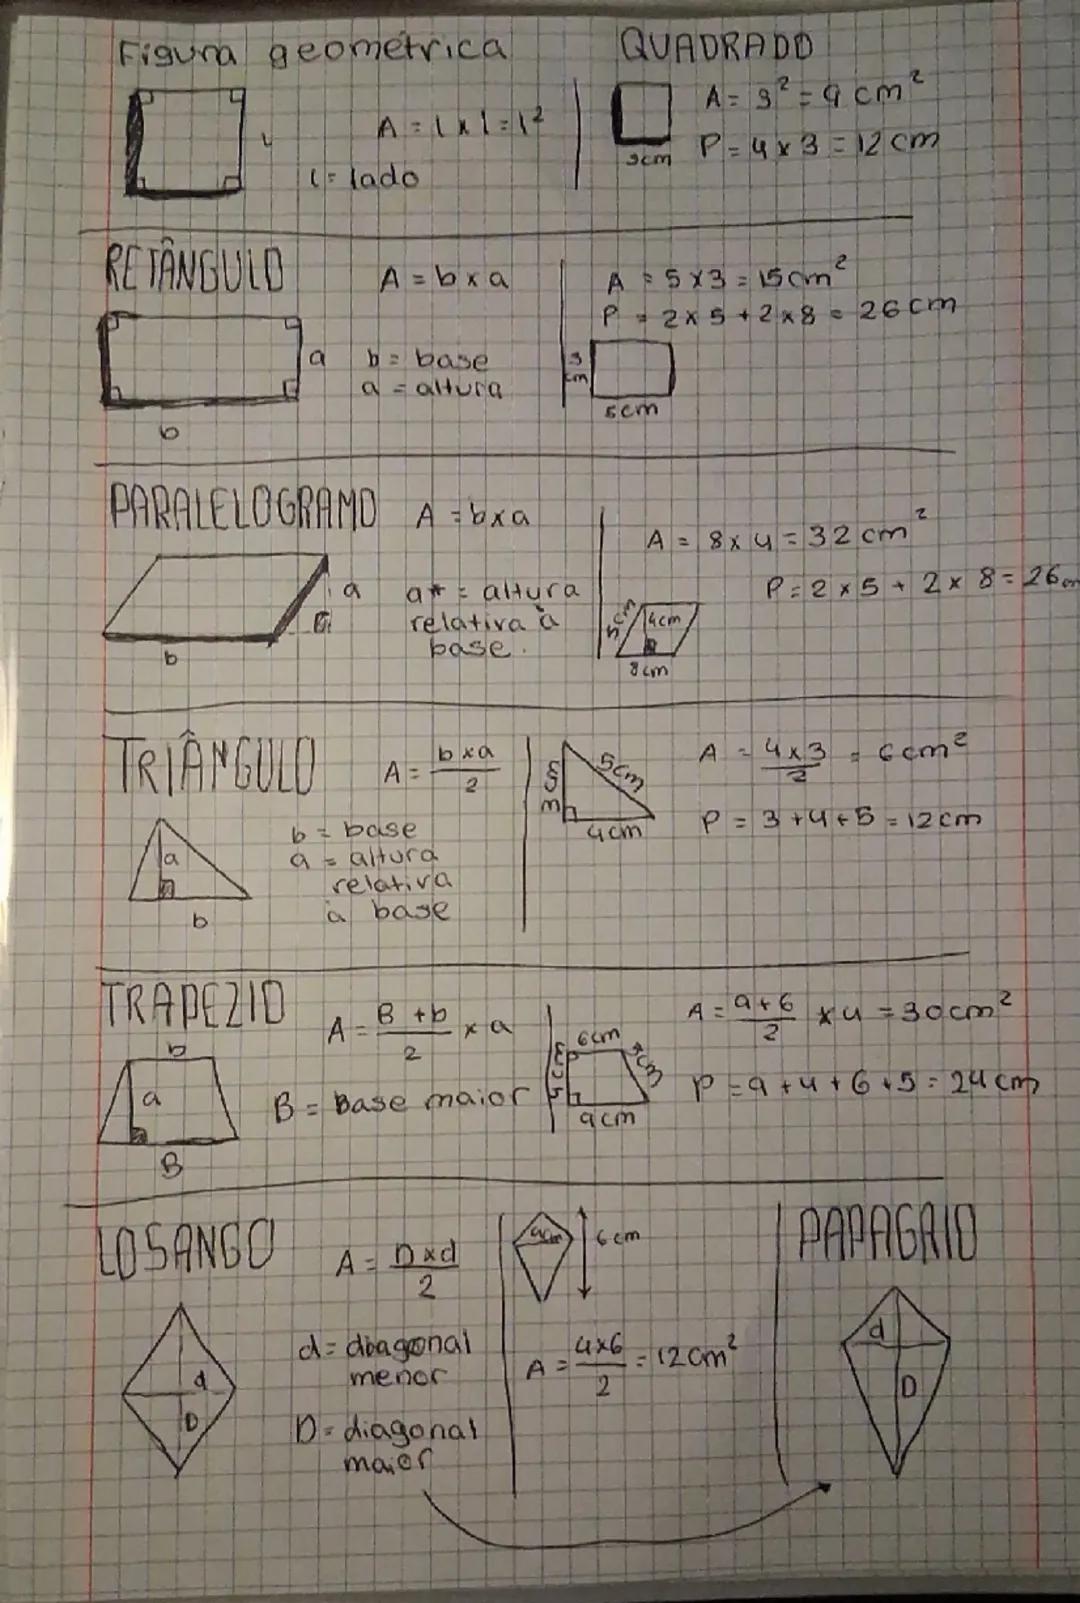 Figura geométrica
QUADRADO
l
A = l x l = l²
l = lado
3cm
A = 3² = 9 cm²
P = 4 x 3 = 12 cm
RETÂNGULO
A = b x a
a
b
b = base
a = altura
A = 5 x 3 = 15 cm²
P = 2 x 5 + 2 x 8 = 26 cm
3 cm
5cm
PARALELOGRAMO
A = b x a
a
b
a* = altura
relativa à
base.
A = 8 x 4 = 32 cm²
P = 2 x 5 + 2 x 8 = 26 cm
5cm
4cm
8cm
TRIÂNGULO
A = b x a / 2
a
b
b = base
a = altura
relativa
à base
5cm
4cm
A = 4 x 3 / 2 = 6 cm²
P = 3 + 4 + 5 = 12 cm
TRAPEZIO
A = B + b / 2 x a
b
a
B
B = Base maior
6cm
9cm
A = 9 + 6 / 2 x 4 = 30 cm²
P = 9 + 4 + 6 + 5 = 24 cm
LOSANGO
A = D x d / 2
d
D
d = diagonal
menor
D = diagonal
maior
4cm
6cm
A = 4 x 6 / 2 = 12 cm²
PAPAGAIO
d
D